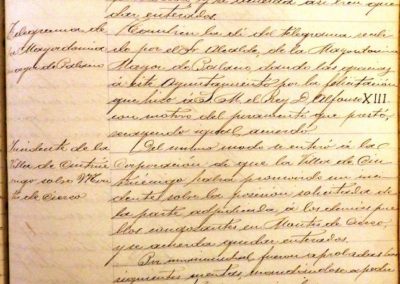 dar enterados.
Telegrama de
la Mayordomia
mayor de Palacio
Tambien se dió del telegrama reci-
bido por el Sr. Alcalde, de la Mayordomia
Mayor de Palacio, dando las gracias
á este Ayuntamiento por la felicitacion
que hizo á S. M. el Rey D. Alfonso XIII.
con motivo del juramento que prestó,
Incidente de la
Villa de Cintrué-
nigo sobre Mon-
tes de Cierzo
Del mismo modo se enteró á la
Corporacion de que la Villa de Cin-
truénigo habia promovido un inci-
dente sobre la posesion solicitada de
la parte adjudicada á los demás pue-
blos congozantes en Montes de Cierzo,
y se acuerda quedar enterados.
Por unanimidad fueron aprobadas las
siguientes cuentas,